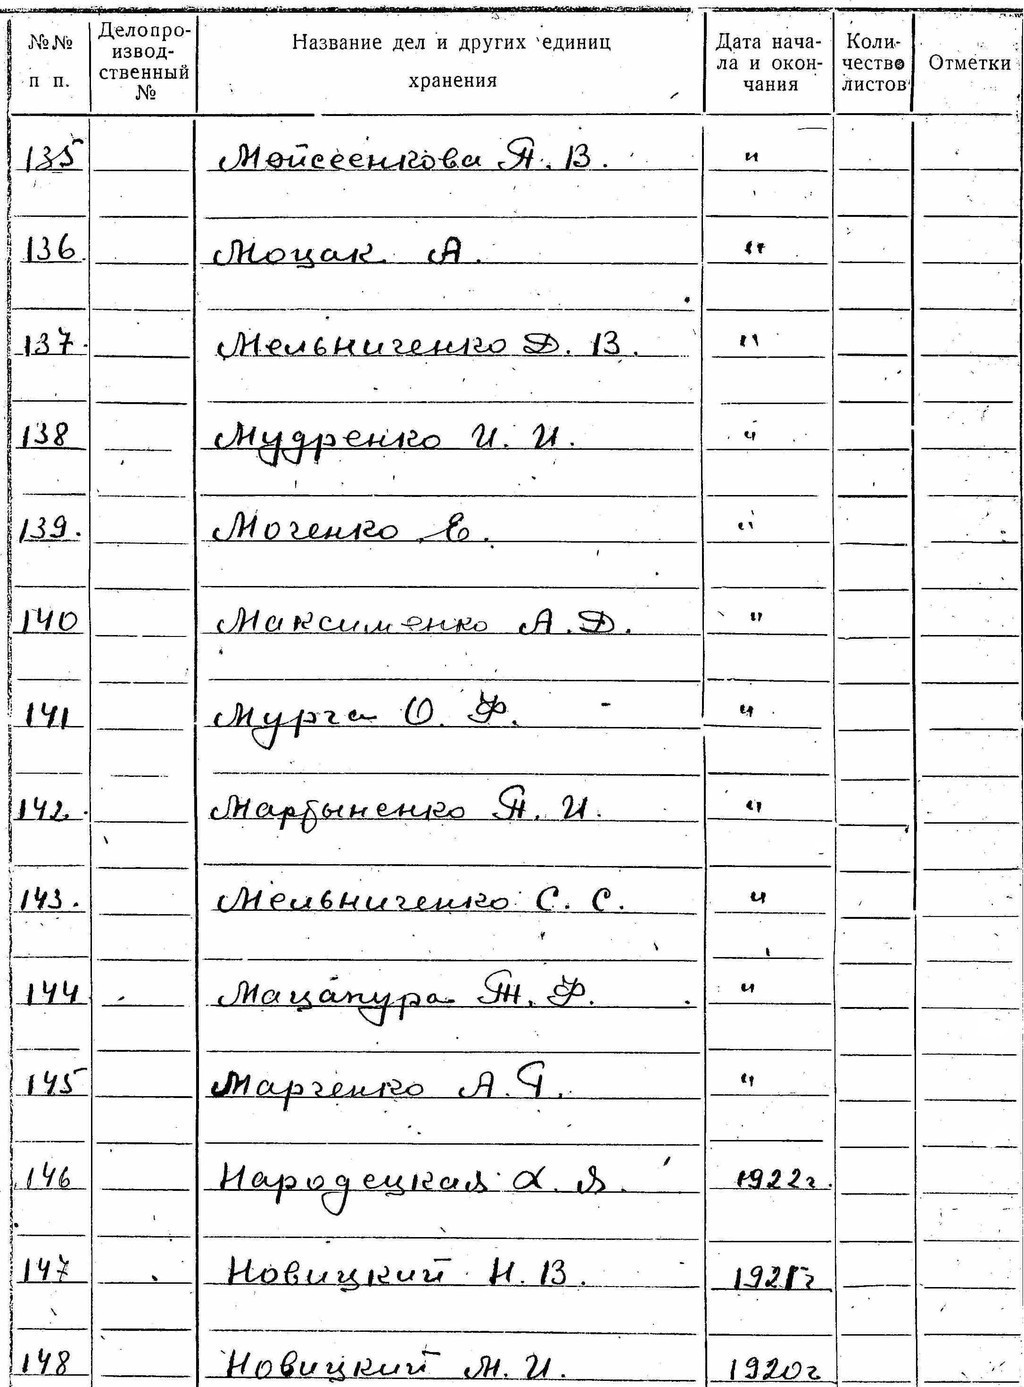 №№ п п. Делопроизводственный № Название дел и других единиц хранения Дата начала и окончания Количество листов Отметки
135 Мойсеенкова П. В. "
136. Моцак А. "
137. Мельниченко Д. В. "
138 Мудренко И. И. "
139. Моченко Е. "
140 Максименко А. Д. "
141 Мурга О. Ф. "
142. Мартыненко П. И. "
143. Мельниченко С. С. "
144 Мацапура Т. Ф. "
145 Марченко А. Г. "
146 Народецкая Х. Я. 1922г.
147 Новицкий Н. В. 1921г
148 Новицкий М. И. 1920г